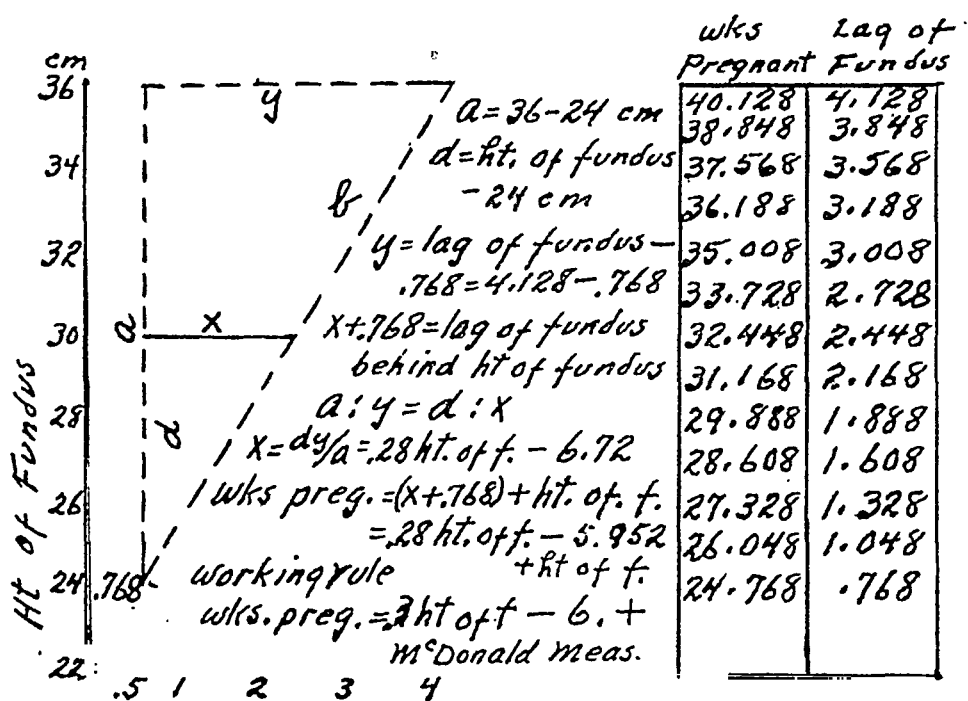 cm
36
34
32
30
28
26
24
22
Ht of Fundus
.768
.5 1 2 3 4
y
b
a
x
d
a = 36-24 cm
d = ht. of fundus
- 24 cm
y = lag of fundus -
.768 = 4.128 - .768
x + .768 = lag of fundus
behind ht of fundus
a : y = d : x
x = dy/a = .28 ht. of f. - 6.72
wks preg. = (x+.768) + ht. of. f.
= .28 ht. of f. - 5.952
+ ht of f.
working rule
wks. preg. = .3 ht of f - 6. +
McDonald meas.
wks Lag of
Pregnant Fundus
40.128 4.128
38.848 3.848
37.568 3.568
36.188 3.188
35.008 3.008
33.728 2.728
32.448 2.448
31.168 2.168
29.888 1.888
28.608 1.608
27.328 1.328
26.048 1.048
24.768 .768